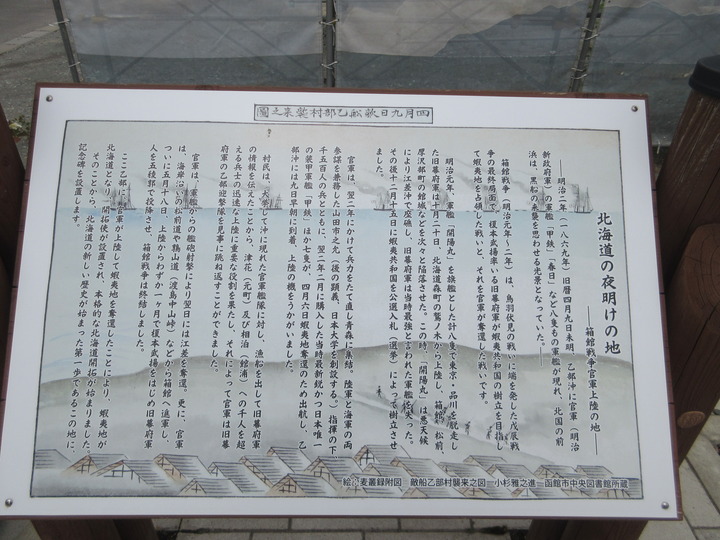 圖之来襲村部乙舩敵日九月四
北海道の夜明けの地
――箱館戦争官軍上陸の地――
――明治二年(一八六九年)旧暦四月九日未明、乙部沖に官軍(明治
新政府軍)の軍艦「甲鉄」「春日」など八隻もの軍艦が現れ、北国の前
浜は、黒船の来襲を思わせる光景となっていた。――
箱館戦争(明治元年~二年)は、鳥羽伏見の戦いに端を発した戊辰戦
争の最終局面で、榎本武揚率いる旧幕府軍が蝦夷共和国の樹立を目指し
て蝦夷地を占領した戦いと、それを官軍が奪還した戦いです。
明治元年、軍艦「開陽丸」を旗艦とした計八隻で東京・品川を脱走し
た旧幕府軍は十月二十日、北海道森町の鷲ノ木から上陸し、箱館、松前、
厚沢部町の館城などを次々と陥落させた。この時、「開陽丸」は悪天候
により江差沖で座礁し、旧幕府軍は当時最強と言われた軍艦を失った。
その後十二月十五日に蝦夷共和国を公選入札(選挙)によって樹立させ
ました。
官軍は、翌二年にかけて兵力をたて直し青森に集結。陸軍と海軍の両
参謀を兼務した山田市之允(後の顕義、日本大学を創設する。)指揮の下
千五百人の兵とともに、翌二年二月に購入した当時最新鋭かつ日本唯一
の装甲軍艦「甲鉄」ほか七隻が、四月六日蝦夷地奪還のため出航し、乙
部沖には九日早朝に到着、上陸の機をうかがいました。
村民は、大挙して沖に現れた官軍艦隊に対し、漁船を出して旧幕府軍
の情報を伝えたことから、津花(元町)及び相泊(館浦)への千人を超
える兵士の迅速な上陸に重要な役割を果たし、それによって官軍は旧幕
府軍の乙部迎撃隊を見事に跳ね返すことができました。
官軍は、軍艦からの艦砲射撃により翌日には江差を奪還。更に、官軍
は、海岸沿いの松前道や鶉山道(渡島中山峠)などから箱館へ進軍し、
ついに五月十八日、上陸からわずか一ヶ月で榎本武揚をはじめ旧幕府軍
人を五稜郭で投降させ、箱館戦争は終結しました。
ここ乙部に官軍が上陸して蝦夷地を奪還したことにより、蝦夷地が
北海道となり、開拓使が設置され、本格的な北海道開拓が始まりました。
そのことから、北海道の新しい歴史が始まった第一歩であるこの地に、
記念碑を設置します。
絵:麦叢録附図 敵船乙部村襲来之図 小杉雅之進 函館市中央図書館所蔵